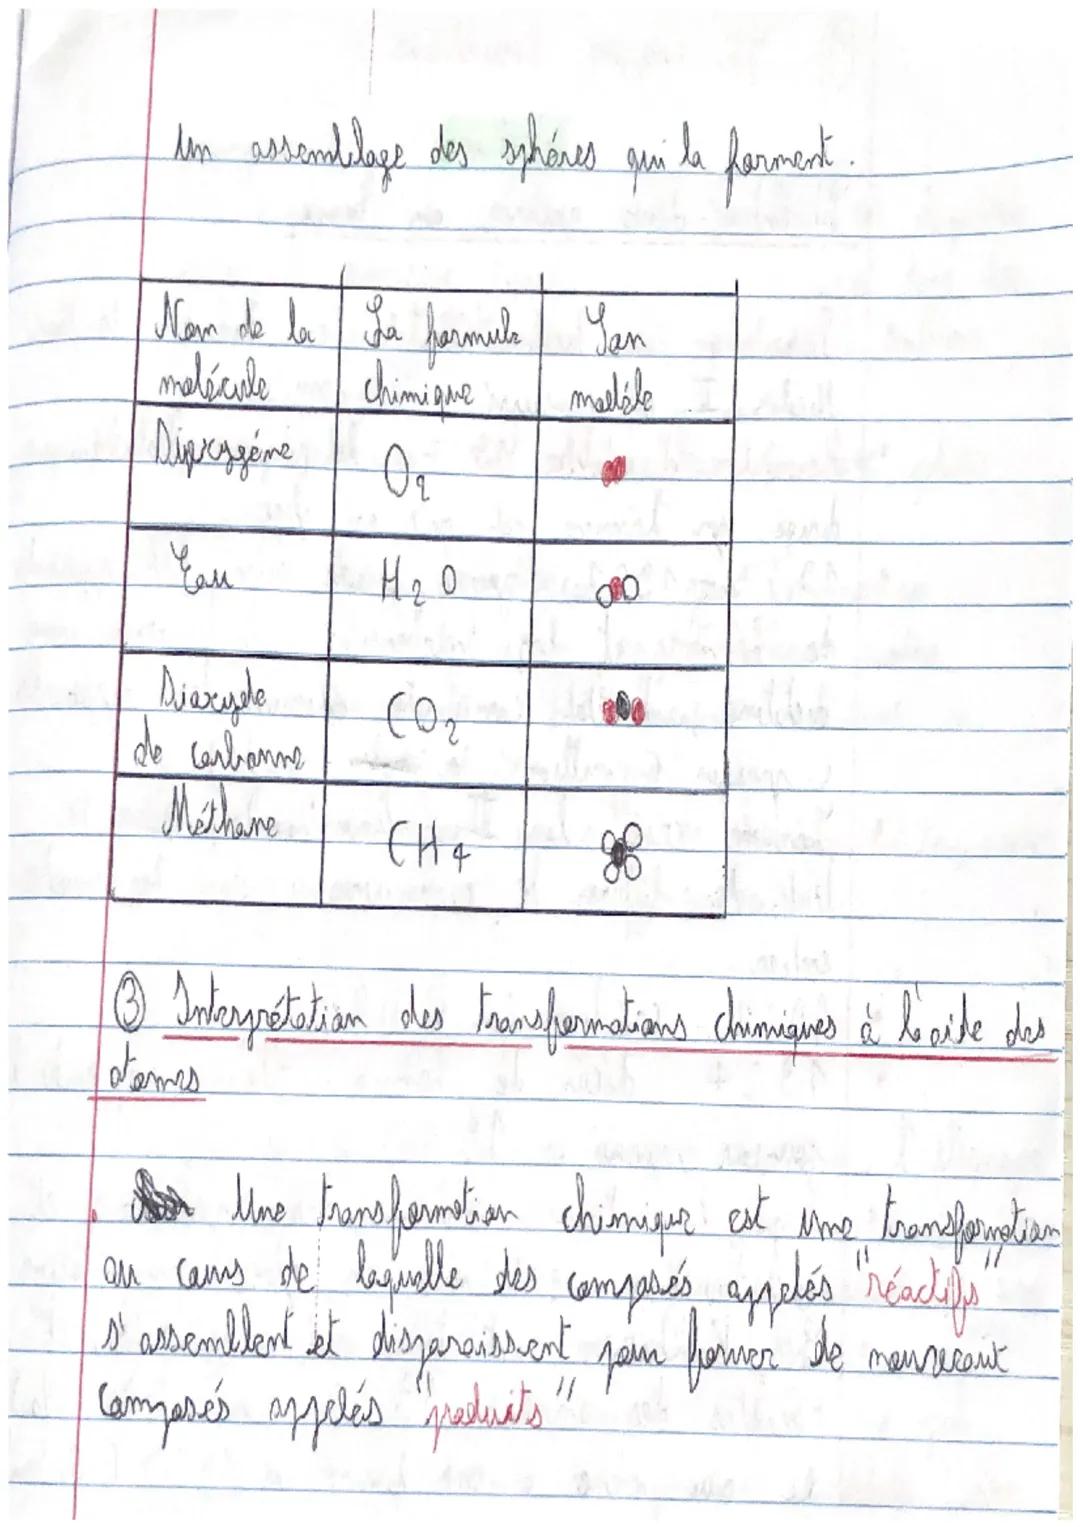 un assemblage des sphéres qui la forment.
Nom de la molécule | La formule chimique | Son modéle
Dioxygéne | O2
Eau | H2O
Dioxyde de carbonne | CO2
Méthane | CH4
③ Interprétation des transformations chimiques à l'aide des
atomes
Une transformation chimique est une transformation
au cours de laquelle des composés appelés "réactifs"
s'assemblent et disparaissent pour former de nouveaux
composés appelés "produits"